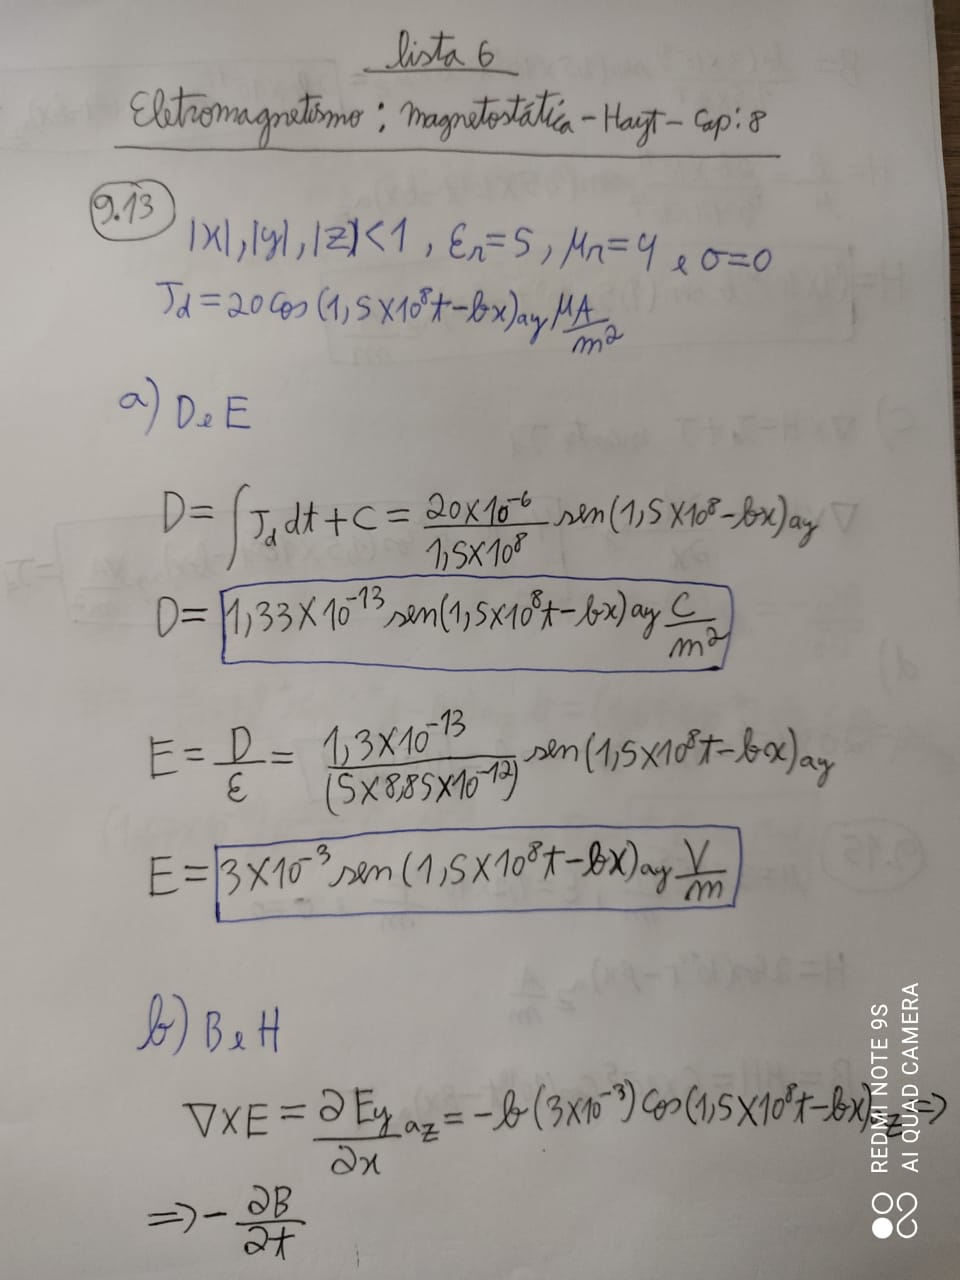 lista 6
Eletromagnetismo: Magnetostática - Hayt - Cap: 8
9.13
|x|, |y|, |z| < 1, εr = 5, μr = 4 e σ = 0
Jd = 20 cos (1,5×10⁸t - bx) ay μA/m²
a) D e E
D = ∫ Jd dt + C = 20×10⁻⁶/1,5×10⁸ sen(1,5×10⁸ - bx) ay
D = 1,33×10⁻¹³ sen(1,5×10⁸t - bx) ay C/m²
E = D/ε = 1,3×10⁻¹³/(5×8,85×10⁻¹²) sen(1,5×10⁸t - bx) ay
E = 3×10⁻³ sen (1,5×10⁸t - bx) ay V/m
b) B e H
∇×E = ∂Ey/∂x az = -b (3×10⁻³) cos(1,5×10⁸t - bx) az =>
=> - ∂B/∂t
REDMI NOTE 9S
AI QUAD CAMERA